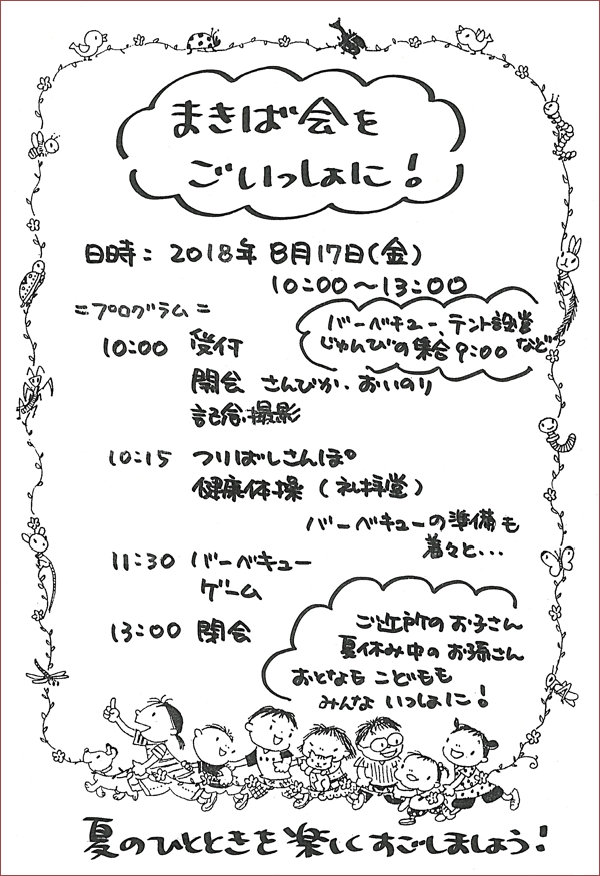 まきば会を
ごいっしょに！
日時：2018年 8月17日(金)
10:00～13:00
＝プログラム＝
バーベキュー、テント設営など
じゅんびの集合 9:00
10:00 受付
開会 さんびか・おいのり
記念撮影
10:15 つりばしさんぽ。
健康体操（礼拝堂）
バーベキューの準備も
着々と・・・
11:30 バーベキュー
ゲーム
13:00 閉会
ご近所のお子さん
夏休み中のお孫さん
おとなも こどもも
みんな いっしょに！
夏のひとときを楽しくすごしましょう！